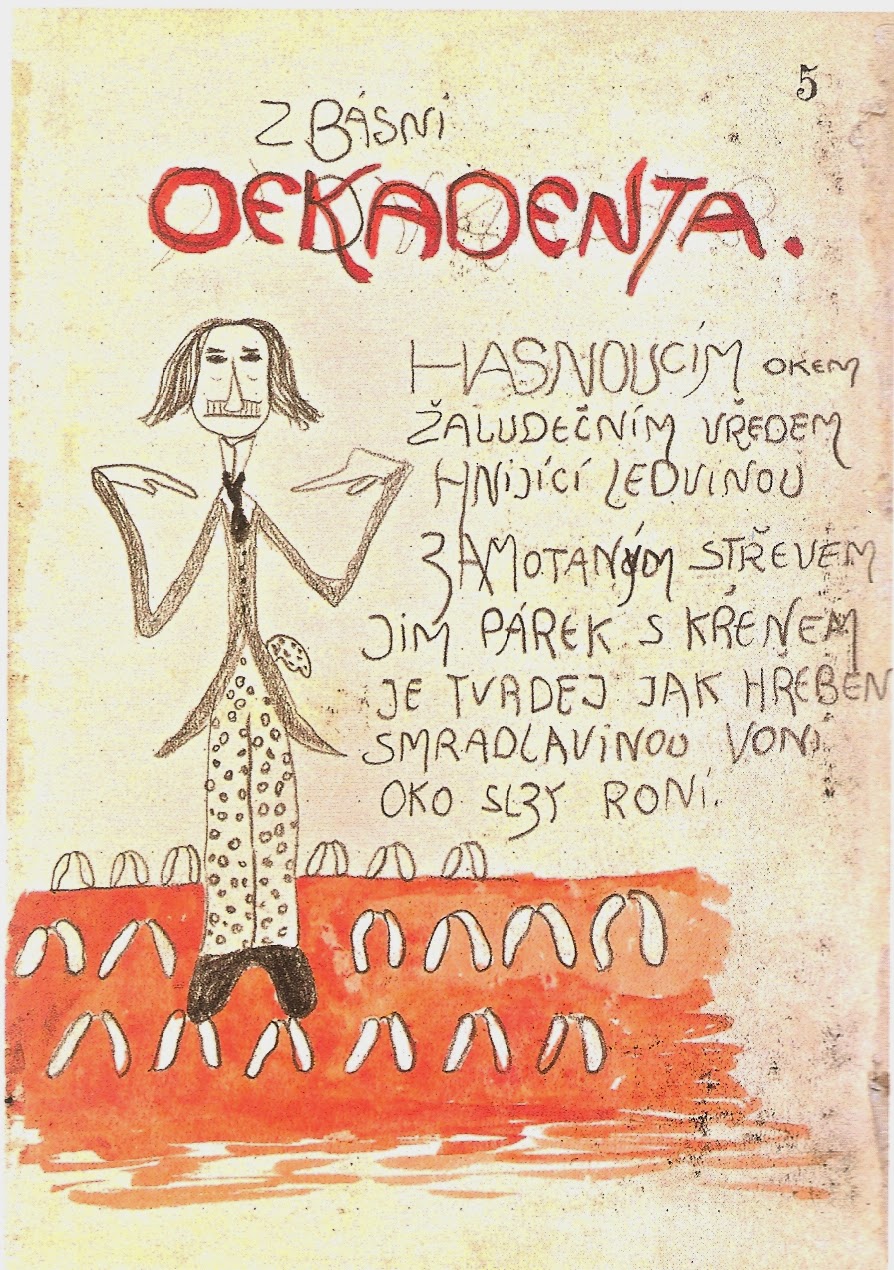 5
Z BÁSNÍ
DEKADENTA.
HASNOUCÍM OKEM
ŽALUDEČNÍM VŘEDEM
HNIJÍCÍ LEDVINOU
ZAMOTANÝM STŘEVEM
JIM PÁREK S KŘENEM
JE TVRDEJ JAK HŘEBEN
SMRADLAVINOU VONÍ
OKO SLZY RONÍ.